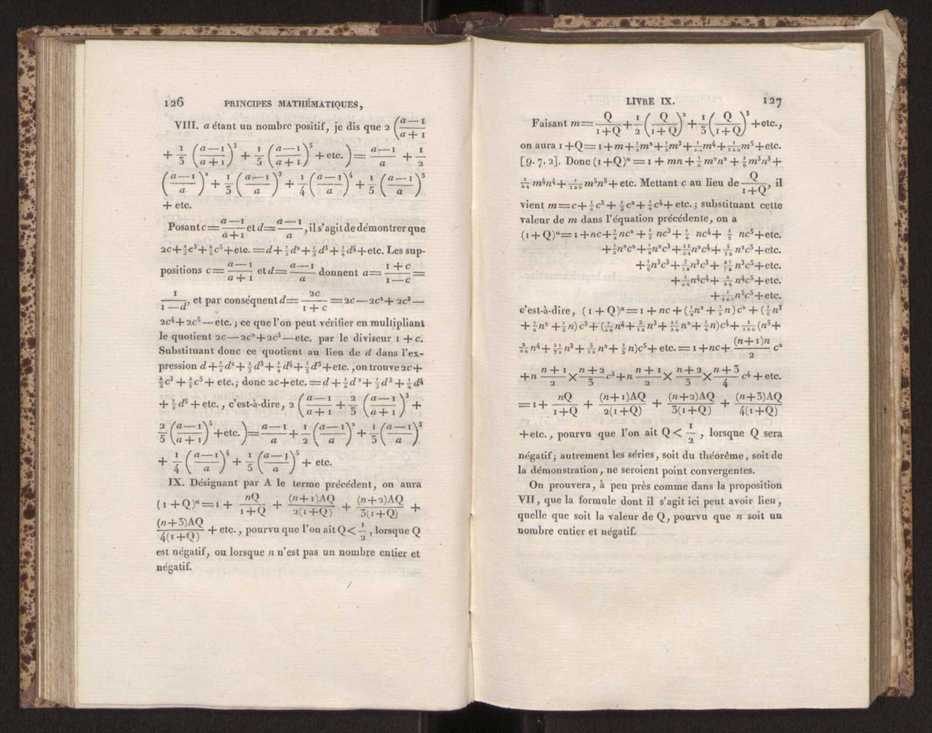 126 PRINCIPES MATHÉMATIQUES,
VIII. a étant un nombre positif, je dis que 2 ((a — 1)/(a + 1)
+ 1/3 ((a — 1)/(a + 1))³ + 1/5 ((a — 1)/(a + 1))⁵ + etc.) = (a — 1)/a + 1/2
((a — 1)/a)² + 1/3 ((a — 1)/a)³ + 1/4 ((a — 1)/a)⁴ + 1/5 ((a — 1)/a)⁵
+ etc.
Posant c = (a — 1)/(a + 1) et d = (a — 1)/a, il s'agit de démontrer que
2c + 2/3 c³ + 2/5 c⁵ + etc. = d + 1/2 d² + 1/3 d³ + 1/4 d⁴ + etc. Les sup-
positions c = (a — 1)/(a + 1) et d = (a — 1)/a donnent a = (1 + c)/(1 — c) =
1/(1 — d), et par conséquent d = 2c/(1 + c) = 2c — 2c² + 2c³ —
2c⁴ + 2c⁵ — etc. ; ce que l'on peut vérifier en multipliant
le quotient 2c — 2c² + 2c³ — etc. par le diviseur 1 + c.
Substituant donc ce quotient au lieu de d dans l'ex-
pression d + 1/2 d² + 1/3 d³ + 1/4 d⁴ + 1/5 d⁵ + etc., on trouve 2c +
2/3 c³ + 2/5 c⁵ + etc. ; donc 2c + etc. = d + 1/2 d² + 1/3 d³ + 1/4 d⁴
+ 1/5 d⁵ + etc., c'est-à-dire, 2 ((a — 1)/(a + 1)) + 2/3 ((a — 1)/(a + 1))³ +
2/5 ((a — 1)/(a + 1))⁵ + etc.) = (a — 1)/a + 1/2 ((a — 1)/a)² + 1/3 ((a — 1)/a)³
+ 1/4 ((a — 1)/a)⁴ + 1/5 ((a — 1)/a)⁵ + etc.
IX. Désignant par A le terme précédent, on aura
(1 + Q)ⁿ = 1 + nQ/(1 + Q) + (n+1)AQ/2(1+Q) + (n+2)AQ/3(1+Q) +
(n+3)AQ/4(1+Q) + etc., pourvu que l'on ait Q < 1/2, lorsque Q
est négatif, ou lorsque n n'est pas un nombre entier et
négatif.
LIVRE IX. 127
Faisant m = Q/(1+Q) + 1/2 (Q/(1+Q))² + 1/3 (Q/(1+Q))³ + etc.,
on aura 1 + Q = 1 + m + 1/2 m² + 1/6 m³ + 1/24 m⁴ + 1/120 m⁵ + etc.
[9. 7. 2]. Donc (1+Q)ⁿ = 1 + mn + 1/2 m²n² + 1/6 m³n³ +
1/24 m⁴n⁴ + 1/120 m⁵n⁵ + etc. Mettant c au lieu de Q/(1+Q), il
vient m = c + 1/2 c² + 1/3 c³ + 1/4 c⁴ + etc. ; substituant cette
valeur de m dans l'équation précédente, on a
(1+Q)ⁿ = 1 + nc + 1/2 nc² + 1/3 nc³ + 1/4 nc⁴ + 1/5 nc⁵ + etc.
+ 1/2 n²c² + 1/2 n²c³ + 11/24 n²c⁴ + 5/12 n²c⁵ + etc.
+ 1/6 n³c³ + 1/4 n³c⁴ + 7/24 n³c⁵ + etc.
+ 1/24 n⁴c⁴ + 1/12 n⁴c⁵ + etc.
+ 1/120 n⁵c⁵ + etc.
c'est-à-dire, (1 + Q)ⁿ = 1 + nc + (1/2 n² + 1/2 n) c² + (1/6 n³
+ 1/2 n² + 1/3 n) c³ + (1/24 n⁴ + 1/4 n³ + 11/24 n² + 1/4 n) c⁴ + 1/120 (n⁵ +
1/12 n⁴ + 7/24 n³ + 5/12 n² + 1/5 n) c⁵ + etc. = 1 + nc + (n+1)n/2 c²
+ n (n + 1)/2 × (n + 2)/3 c³ + n (n + 1)/2 × (n + 2)/3 × (n + 3)/4 c⁴ + etc.
= 1 + nQ/(1+Q) + (n+1)AQ/2(1+Q) + (n+2)AQ/3(1+Q) + (n+3)AQ/4(1+Q)
+ etc., pourvu que l'on ait Q < 1/2, lorsque Q sera
négatif ; autrement les séries, soit du théorème, soit de
la démonstration, ne seroient point convergentes.
On prouvera, à peu près comme dans la proposition
VII, que la formule dont il s'agit ici peut avoir lieu,
quelle que soit la valeur de Q, pourvu que n soit un
nombre entier et négatif.